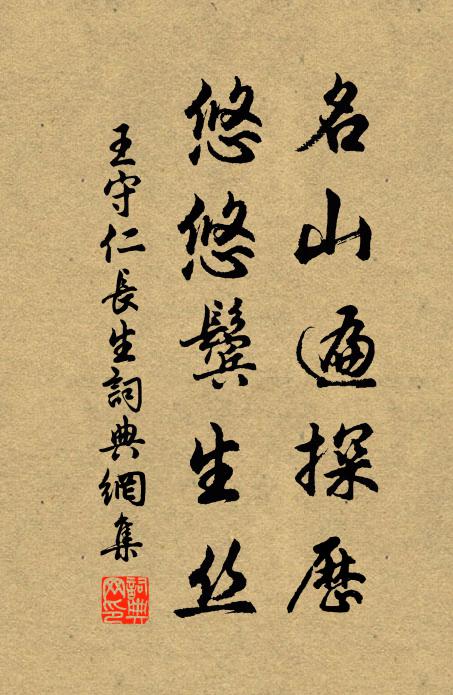 名山遍探歷
悠悠鬢生丝
王守仁長生詞典網集
詞典网印